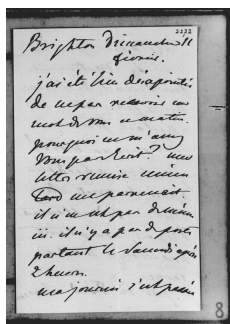 2272
Brighton Dimanche 11
fevrier.
j'ai été bien désapointée
de ne pas recevoir un
mot de vous ce matin.
pourquoi ne m'avez
vous pas écrit? une
lettre remise même
tard me parvenait
il n'en est pas de même
ici. il n'y a pas de poste
partant le Samedi après
2 heures.
ma journée s'est passée
8